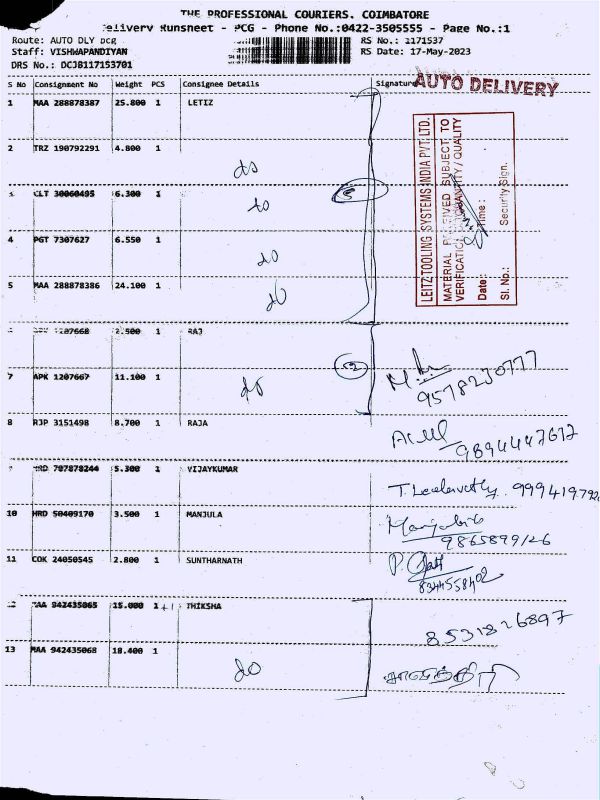 THE PROFESSIONAL COURIERS. COIMBATORE
Delivery Runsheet - PCG - Phone No.:0422-3505555 - Page No.:1
Route: AUTO DLY pcg
RS No.: 1171537
Staff: VISHWAPANDIYAN
RS Date: 17-May-2023
DRS No.: DCJB117153701
S No Consignment No Weight PCS Consignee Details Signature
AUTO DELIVERY
1 MAA 288878387 25.800 1 LETIZ
2 TRZ 190792291 4.800 1
do
3 CLT 30060495 6.300 1
do
5
4 PGT 7307627 6.550 1
do
5 MAA 288878386 24.100 1
do
LEITZ TOOLING SYSTEMS INDIA PVT. LTD.
MATERIAL RECEIVED SUBJECT TO
VERIFICATION QUANTITY / QUALITY
Date: Time:
Sl. No.: Security Sign.
1207668 2.500 1 RAJ
2
7 APK 1207667 11.100 1
do
9578230777
8 RJP 3151498 8.700 1 RAJA
9894447612
9 HRD 707878244 5.300 1 VIJAYKUMAR
T. Leelavathy. 999419792
10 HRD 50409170 3.500 1 MANJULA
9865899126
11 COK 24050545 2.800 1 SUNTHARNATH
8344558402
12 MAA 942435065 15.000 1+1 THIKSHA
8531826897
13 MAA 942435068 18.400 1
do